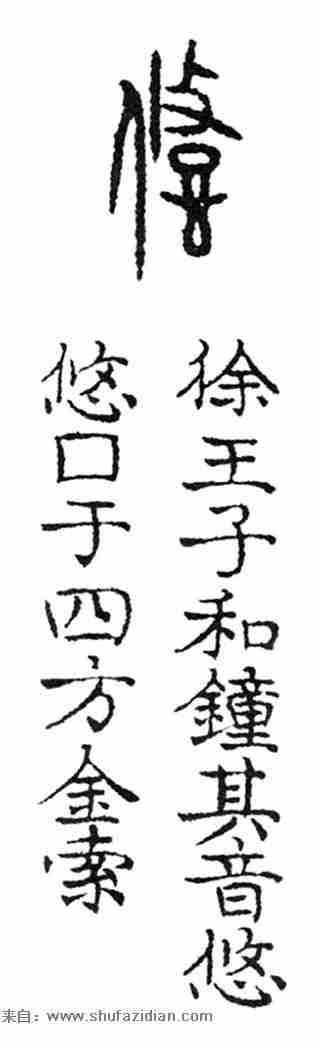 徐王子和鐘其音悠
悠口于四方金索
来自：www.shufazidian.com